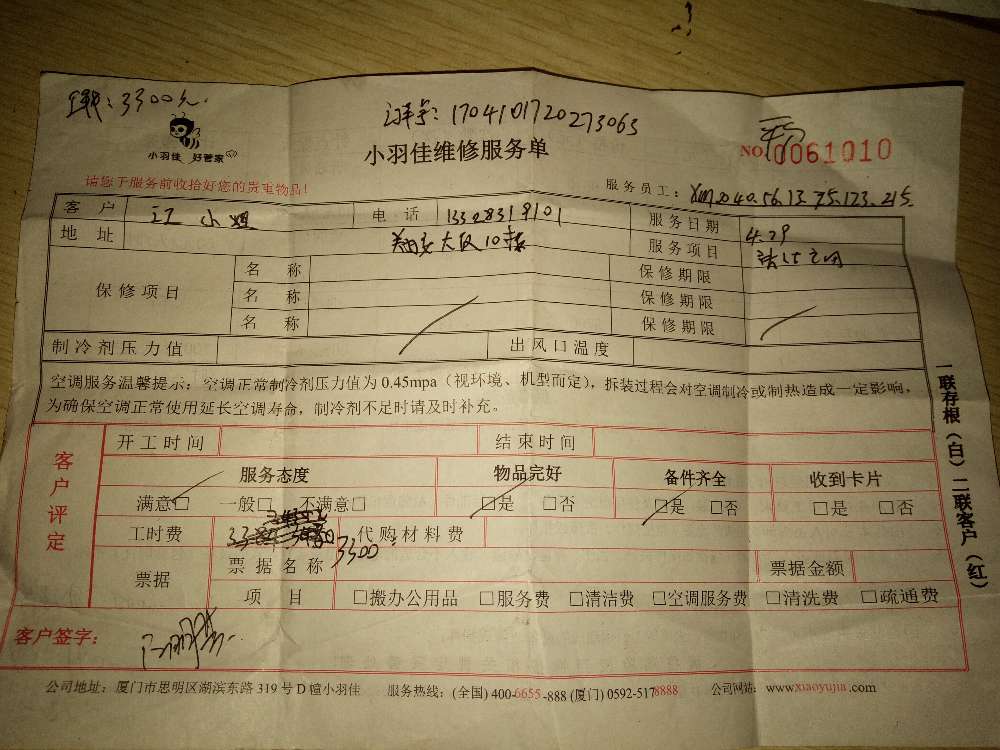 3300元.
单号: 170410172027306​3
小羽佳 好管家
小羽佳维修服务单
NO.0061010
请您于服务前收拾好您的贵重物品!
服务员工:
客户 江小姐 电话 服务日期 4.29
地址 大厦10楼 服务项目
保修项目 名称 保修期限
名称 保修期限
名称 保修期限
制冷剂压力值 出风口温度
空调服务温馨提示:空调正常制冷剂压力值为 0.45mpa(视环境、机型而定),拆装过程会对空调制冷或制热造成一定影响,
为确保空调正常使用延长空调寿命,制冷剂不足时请及时补充。
客户评定
开工时间 结束时间
服务态度 物品完好 备件齐全 收到卡片
满意□ 一般□ 不满意□ □是 □否 □是 □否 □是 □否
工时费 3300 代购材料费
票据 票据名称 票据金额
项目 □搬办公用品 □服务费 □清洁费 □空调服务费 □清洗费 □疏通费
客户签字:
一联存根(白)二联客户(红)
公司地址:厦门市思明区湖滨东路 319 号 D 幢小羽佳 服务热线:(全国) 400-6655-888 (厦门) 0592-5178888 公司网站: www.xiaoyujia.com